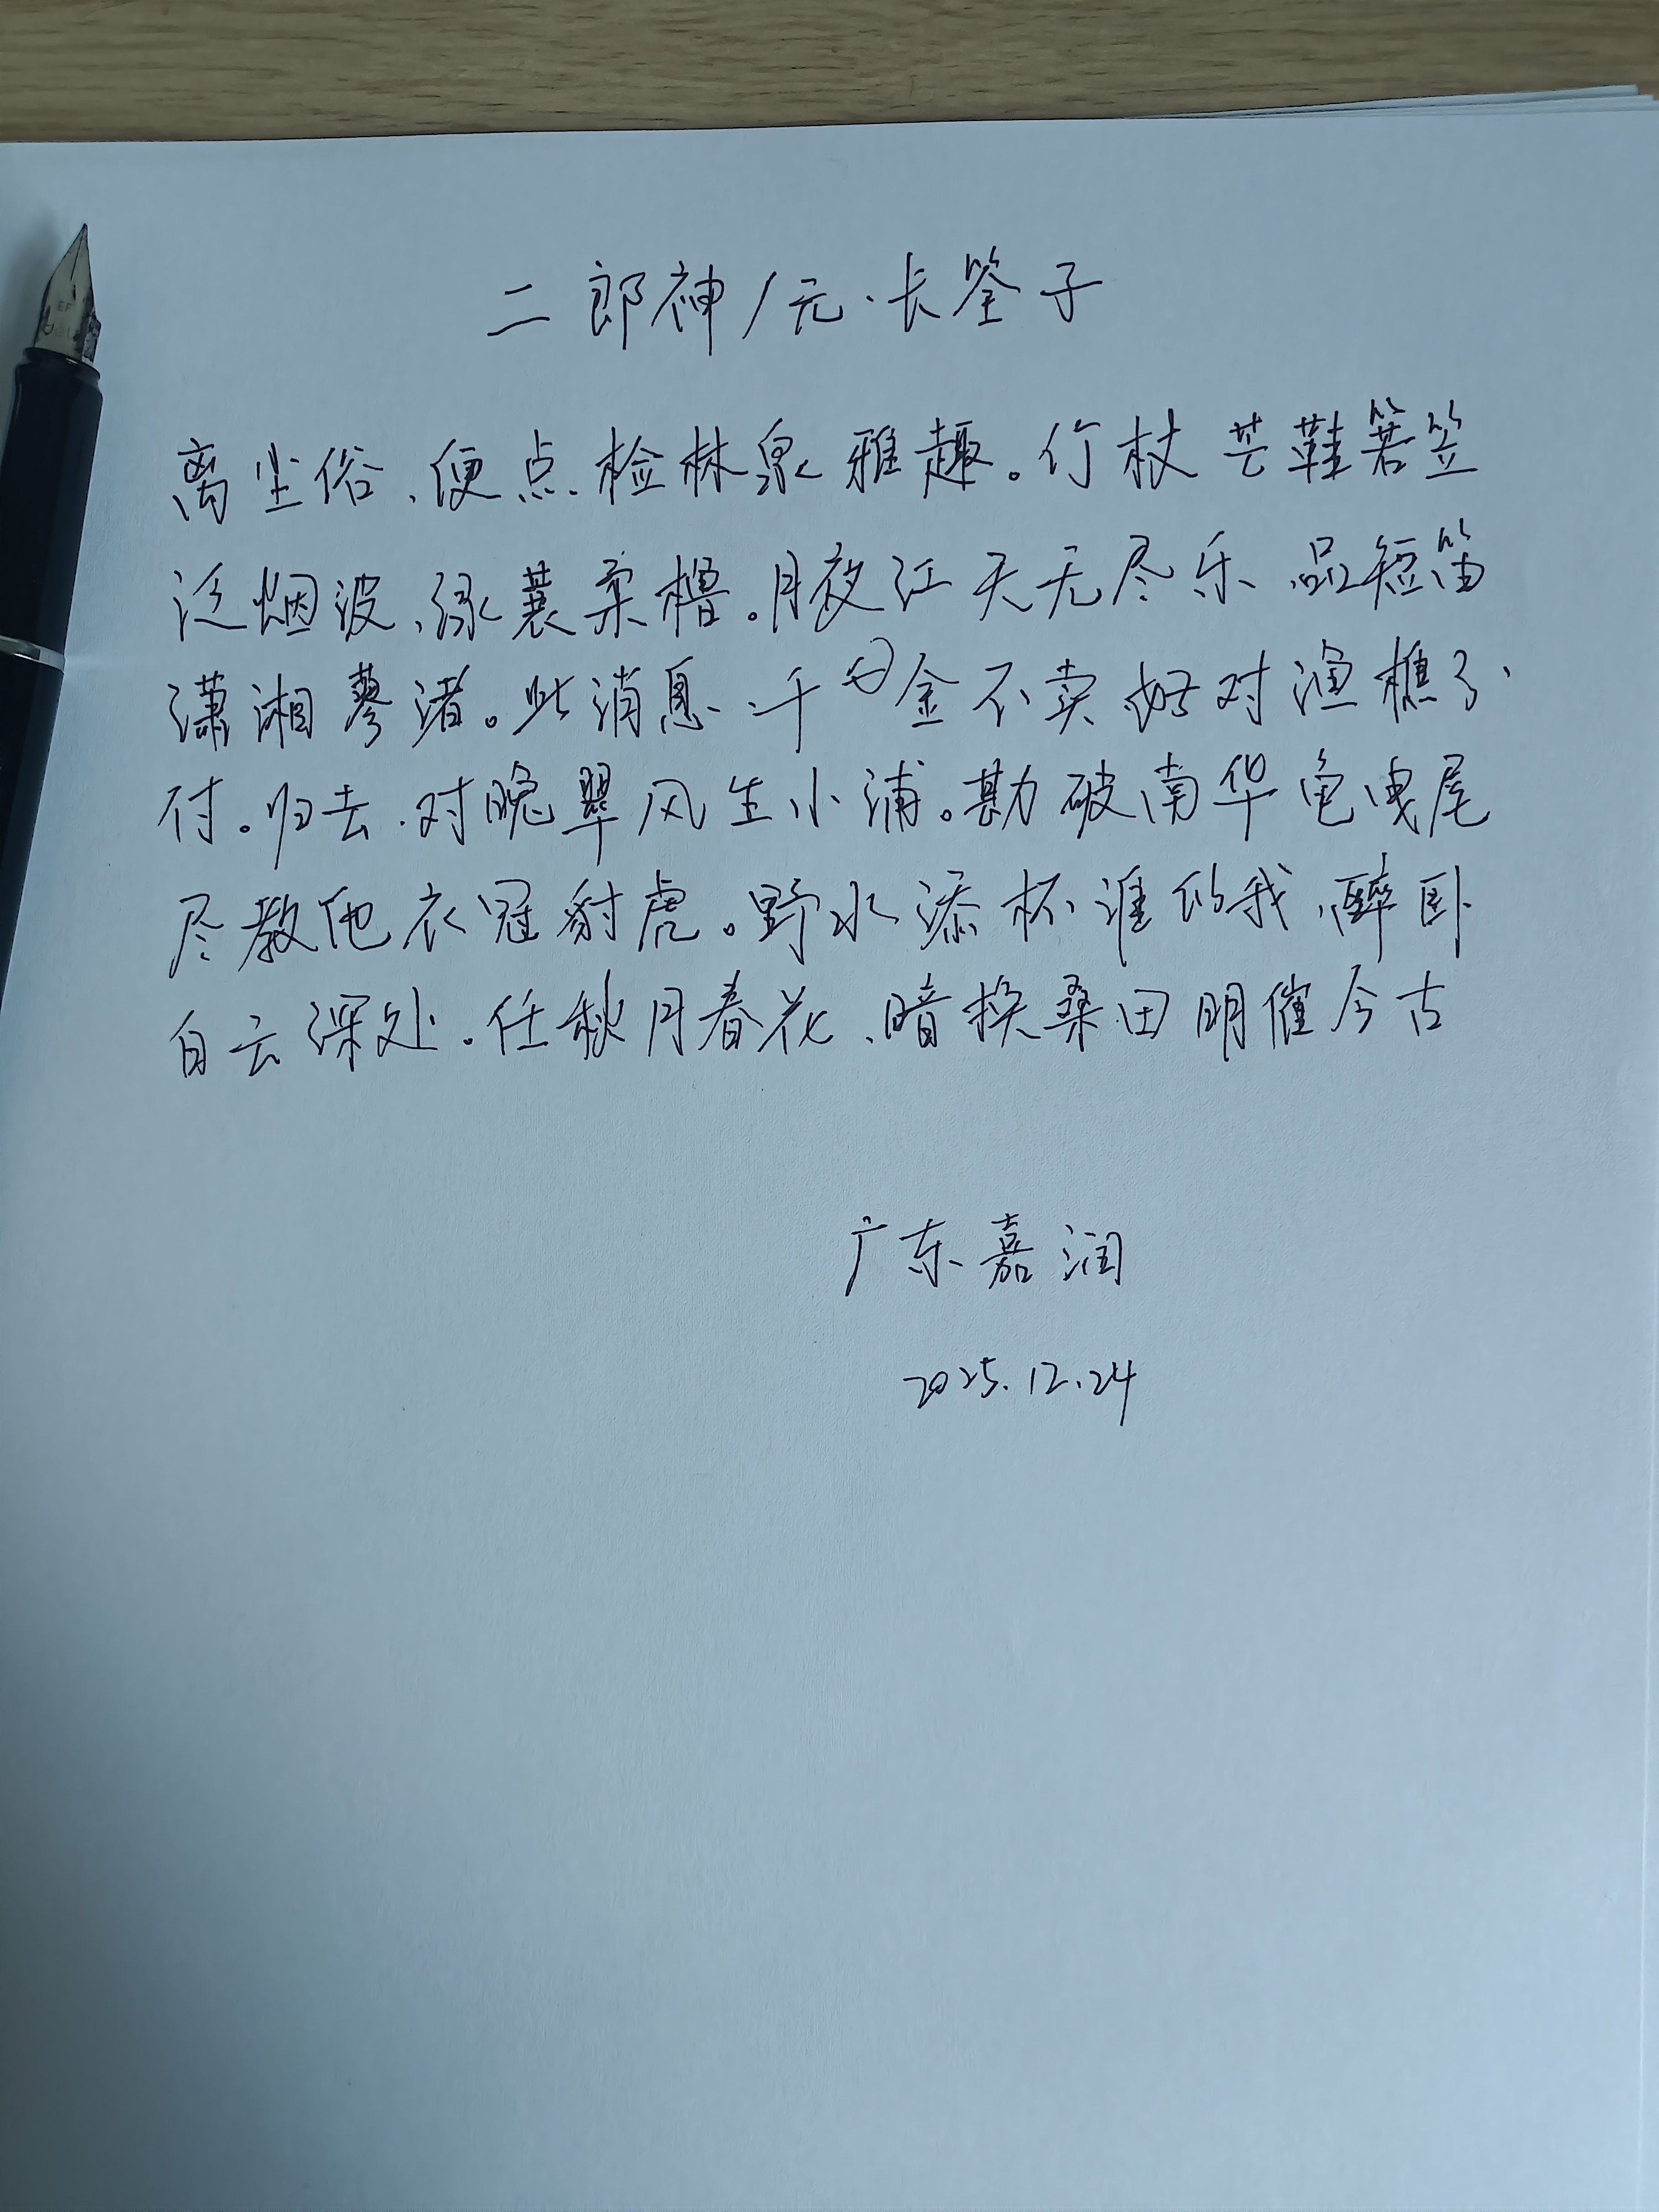 二郎神/元·长筌子
离尘俗、便点检林泉雅趣。竹杖芒鞋箬笠
泛烟波、绿蓑柔橹。月夜江天无尽乐、品短笛
潇湘蓼渚。此消息、千金不卖、好对渔樵分
付。归去、对晚翠风生小浦。勘破南华龟曳尾
尽教他衣冠豺虎。野水添杯谁似我、醉卧
白云深处。任秋月春花、暗换桑田明催今古
广东嘉润
2025.12.24
EF